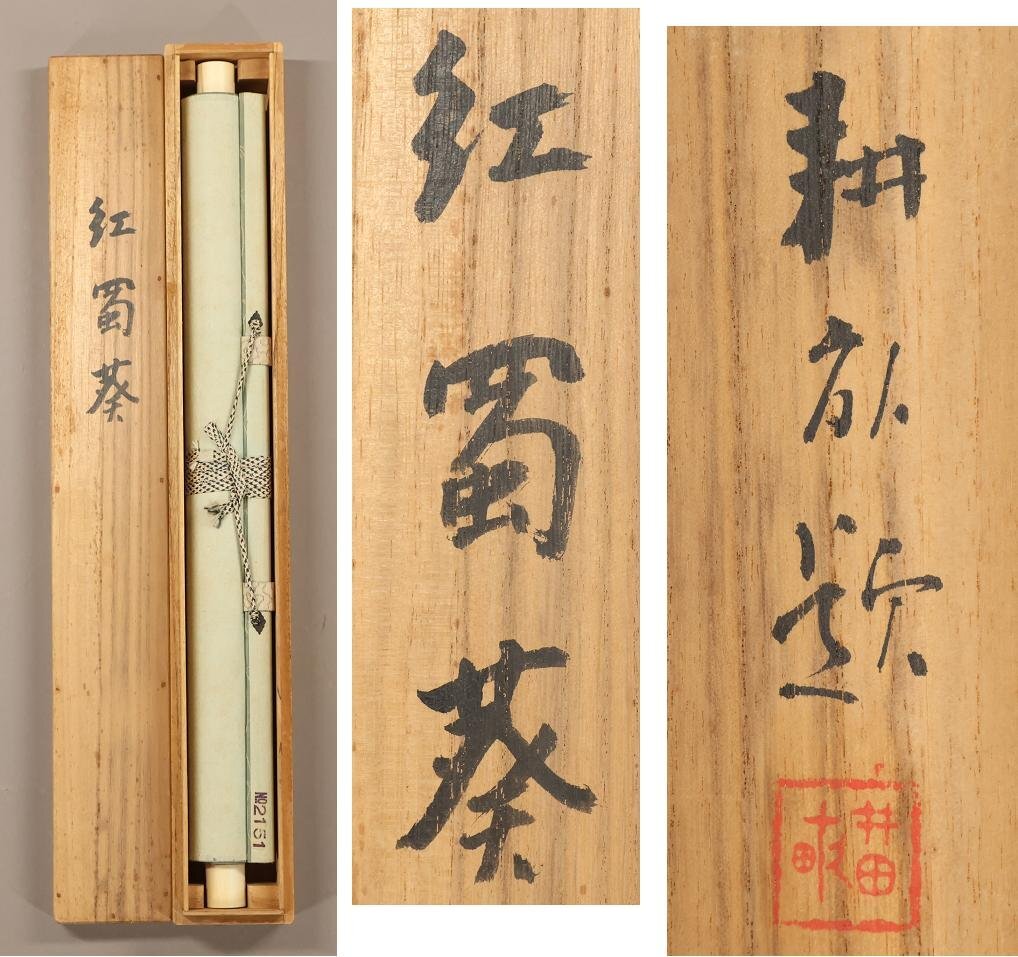 紅
蜀
葵
No.2151
紅
蜀
葵
耕
畝
題